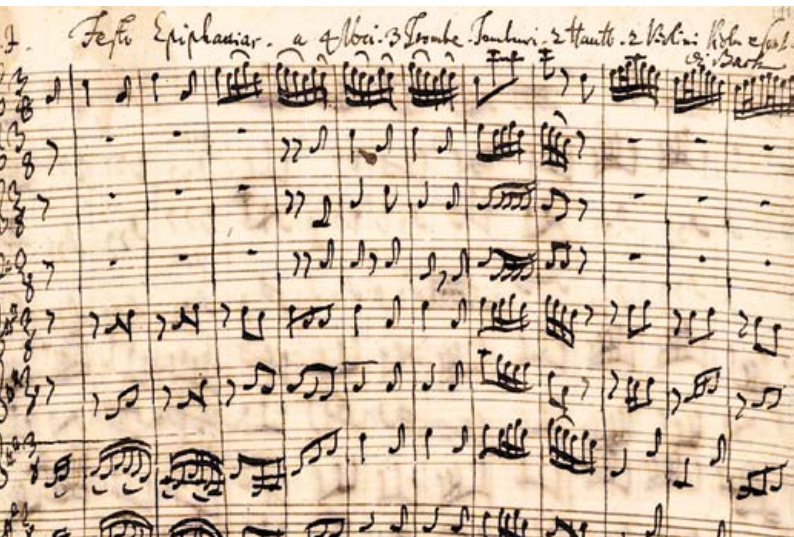 J. Festo Epiphanias. a 4 Voci. 3 Trombe. Tamburi. 2 Hautb. 2 Violini Viola e Cont.
di Bach
3 8
3 8